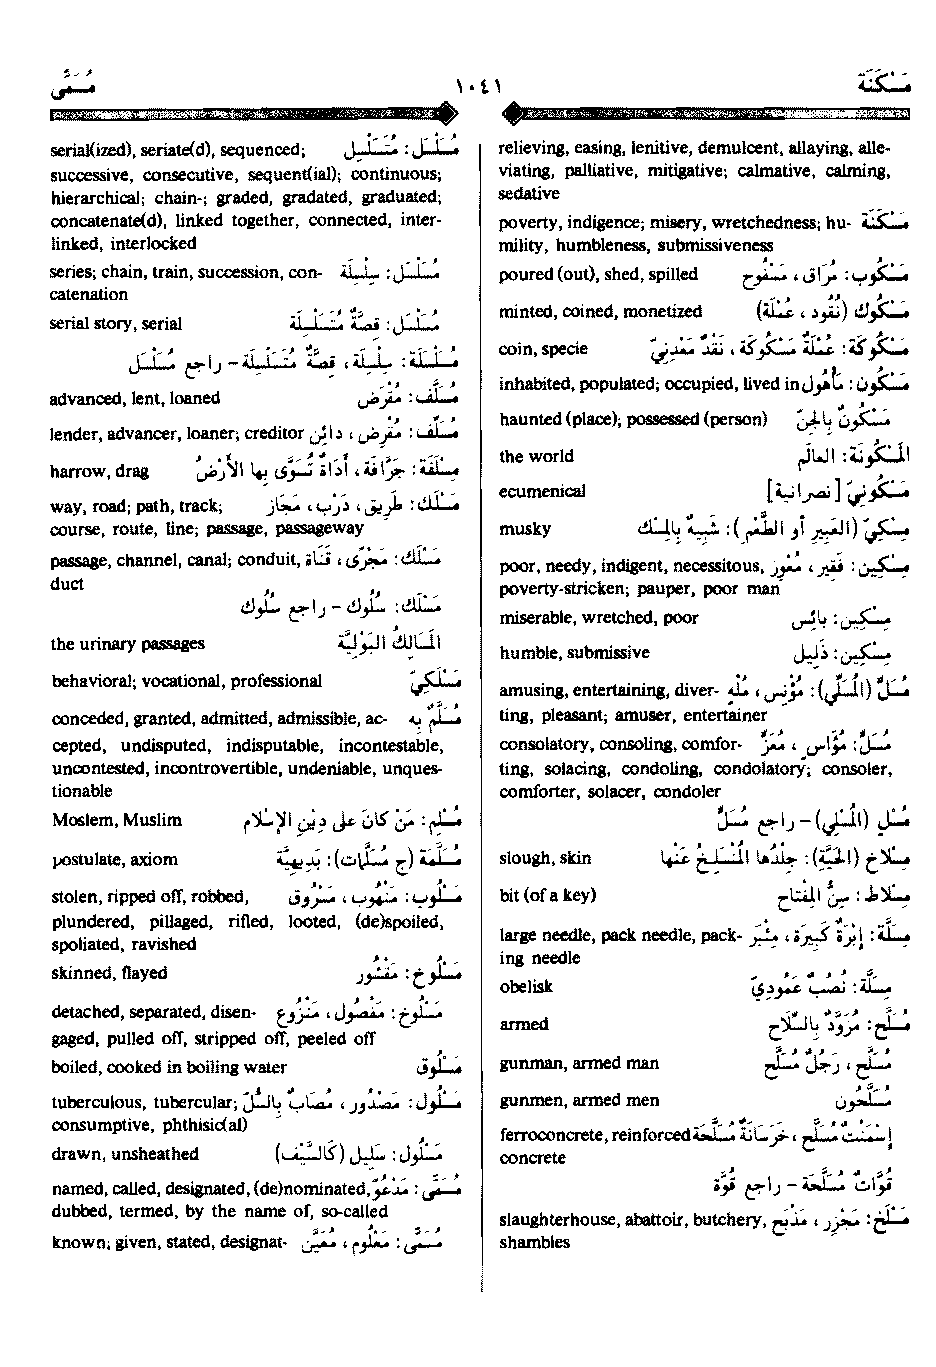 مَسْكَنَة
١٠٤١
مُسَمًّى
relieving, easing, lenitive, demulcent, allaying, alle-
viating, palliative, mitigative; calmative, calming,
sedative
مَسْكَنَة poverty, indigence; misery, wretchedness; hu-
mility, humbleness, submissiveness
مَسْكُوب: مُرَاق، مَسْفُوح poured (out), shed, spilled
مَسْكُوك (نُقُود، عُمْلَة) minted, coined, monetized
مَسْكُوكَة: عُمْلَةٌ مَسْكُوكَة، نَقْدٌ مَعْدِنِيّ coin, specie
مَسْكُون: مَأْهُول inhabited, populated; occupied, lived in
مَسْكُونٌ بِالجِنّ haunted (place); possessed (person)
المَسْكُونَة: العالَم the world
مَسْكُونِيّ [نصرانية] ecumenical
مِسْكِيّ (العَبِير أو الطَّعْم): شَبِيهٌ بِالمِسْك musky
مِسْكِين: فَقِير، مُعْوِز poor, needy, indigent, necessitous,
poverty-stricken; pauper, poor man
مِسْكِين: بائِس miserable, wretched, poor
مِسْكِين: ذَلِيل humble, submissive
مُسَلٍّ (المُسَلِّي): مُؤْنِس، مُلْهٍ amusing, entertaining, diver-
ting, pleasant; amuser, entertainer
مُسَلٍّ: مُؤَاسٍ، مُعَزٍّ consolatory, consoling, comfor-
ting, solacing, condoling, condolatory; consoler,
comforter, solacer, condoler
مُسْلٍ (المُسْلِي) – راجع مُسَلٍّ
مِسْلاخ (الحَيَّة): جِلْدُها المُنْسَلِخُ عَنْها slough, skin
مِسْلاط: سِنُّ المِفْتاح bit (of a key)
مِسَلَّة: إِبْرَةٌ كَبِيرَة، مِئْبَر large needle, pack needle, pack-
ing needle
مِسَلَّة: نُصُبٌ عَمُودِيّ obelisk
مُسَلَّح: مُزَوَّدٌ بِالسِّلاح armed
مُسَلَّح، رَجُلٌ مُسَلَّح gunman, armed man
مُسَلَّحُون gunmen, armed men
إسْمَنْت مُسَلَّح، خَرَسَانَةٌ مُسَلَّحَة ferroconcrete, reinforced
concrete
قُوَّاتٌ مُسَلَّحَة – راجع قُوَّة
مَسْلَخ: مَجْزِر، مَذْبَح slaughterhouse, abattoir, butchery,
shambles
مُسَلْسَل: مُتَسَلْسِل serial(ized), seriate(d), sequenced;
successive, consecutive, sequent(ial); continuous;
hierarchical; chain-; graded, gradated, graduated;
concatenate(d), linked together, connected, inter-
linked, interlocked
مُسَلْسَل: سِلْسِلَة series; chain, train, succession, con-
catenation
مُسَلْسَل: قِصَّةٌ مُتَسَلْسِلَة serial story, serial
مُسَلْسَلَة: سِلْسِلَة، قِصَّةٌ مُتَسَلْسِلَة – راجع مُسَلْسَل
مُسَلَّف: مُقْرَض advanced, lent, loaned
مُسَلِّف: مُقْرِض، دائِن lender, advancer, loaner; creditor
مِسْلَفَة: جَرَّافَة، أَدَاةٌ تُسَوَّى بِها الأَرْضُ harrow, drag
مَسْلَك: طَرِيق، دَرْب، مَجَاز way, road; path, track;
course, route, line; passage, passageway
مَسْلَك: مَجْرًى، قَنَاة passage, channel, canal; conduit,
duct
مَسْلَك: سُلُوك – راجع سُلُوك
المَسَالِكُ البَوْلِيَّة the urinary passages
مَسْلَكِيّ behavioral; vocational, professional
مُسَلَّمٌ بِه conceded, granted, admitted, admissible, ac-
cepted, undisputed, indisputable, incontestable,
uncontested, incontrovertible, undeniable, unques-
tionable
مُسْلِم: مَنْ كانَ على دِيْنِ الإسْلام Moslem, Muslim
مُسَلَّمَة (ج مُسَلَّمَات): بَدِيهِيَّة postulate, axiom
مَسْلُوب: مَنْهُوب، مَسْرُوق stolen, ripped off, robbed,
plundered, pillaged, rifled, looted, (de)spoiled,
spoliated, ravished
مَسْلُوخ: مَقْشُور skinned, flayed
مَسْلُوخ: مَفْصُول، مَنْزُوع detached, separated, disen-
gaged, pulled off, stripped off, peeled off
مَسْلُوق boiled, cooked in boiling water
مَسْلُول: مَصْدُور، مُصَابٌ بِالسُّلّ tuberculous, tubercular;
consumptive, phthisic(al)
مَسْلُول: سَلِيل (كَالسَّيْف) drawn, unsheathed
مُسَمًّى: مَدْعُوّ named, called, designated, (de)nominated,
dubbed, termed, by the name of, so-called
مُسَمًّى: مَعْلُوم، مُعَيَّن known; given, stated, designat-